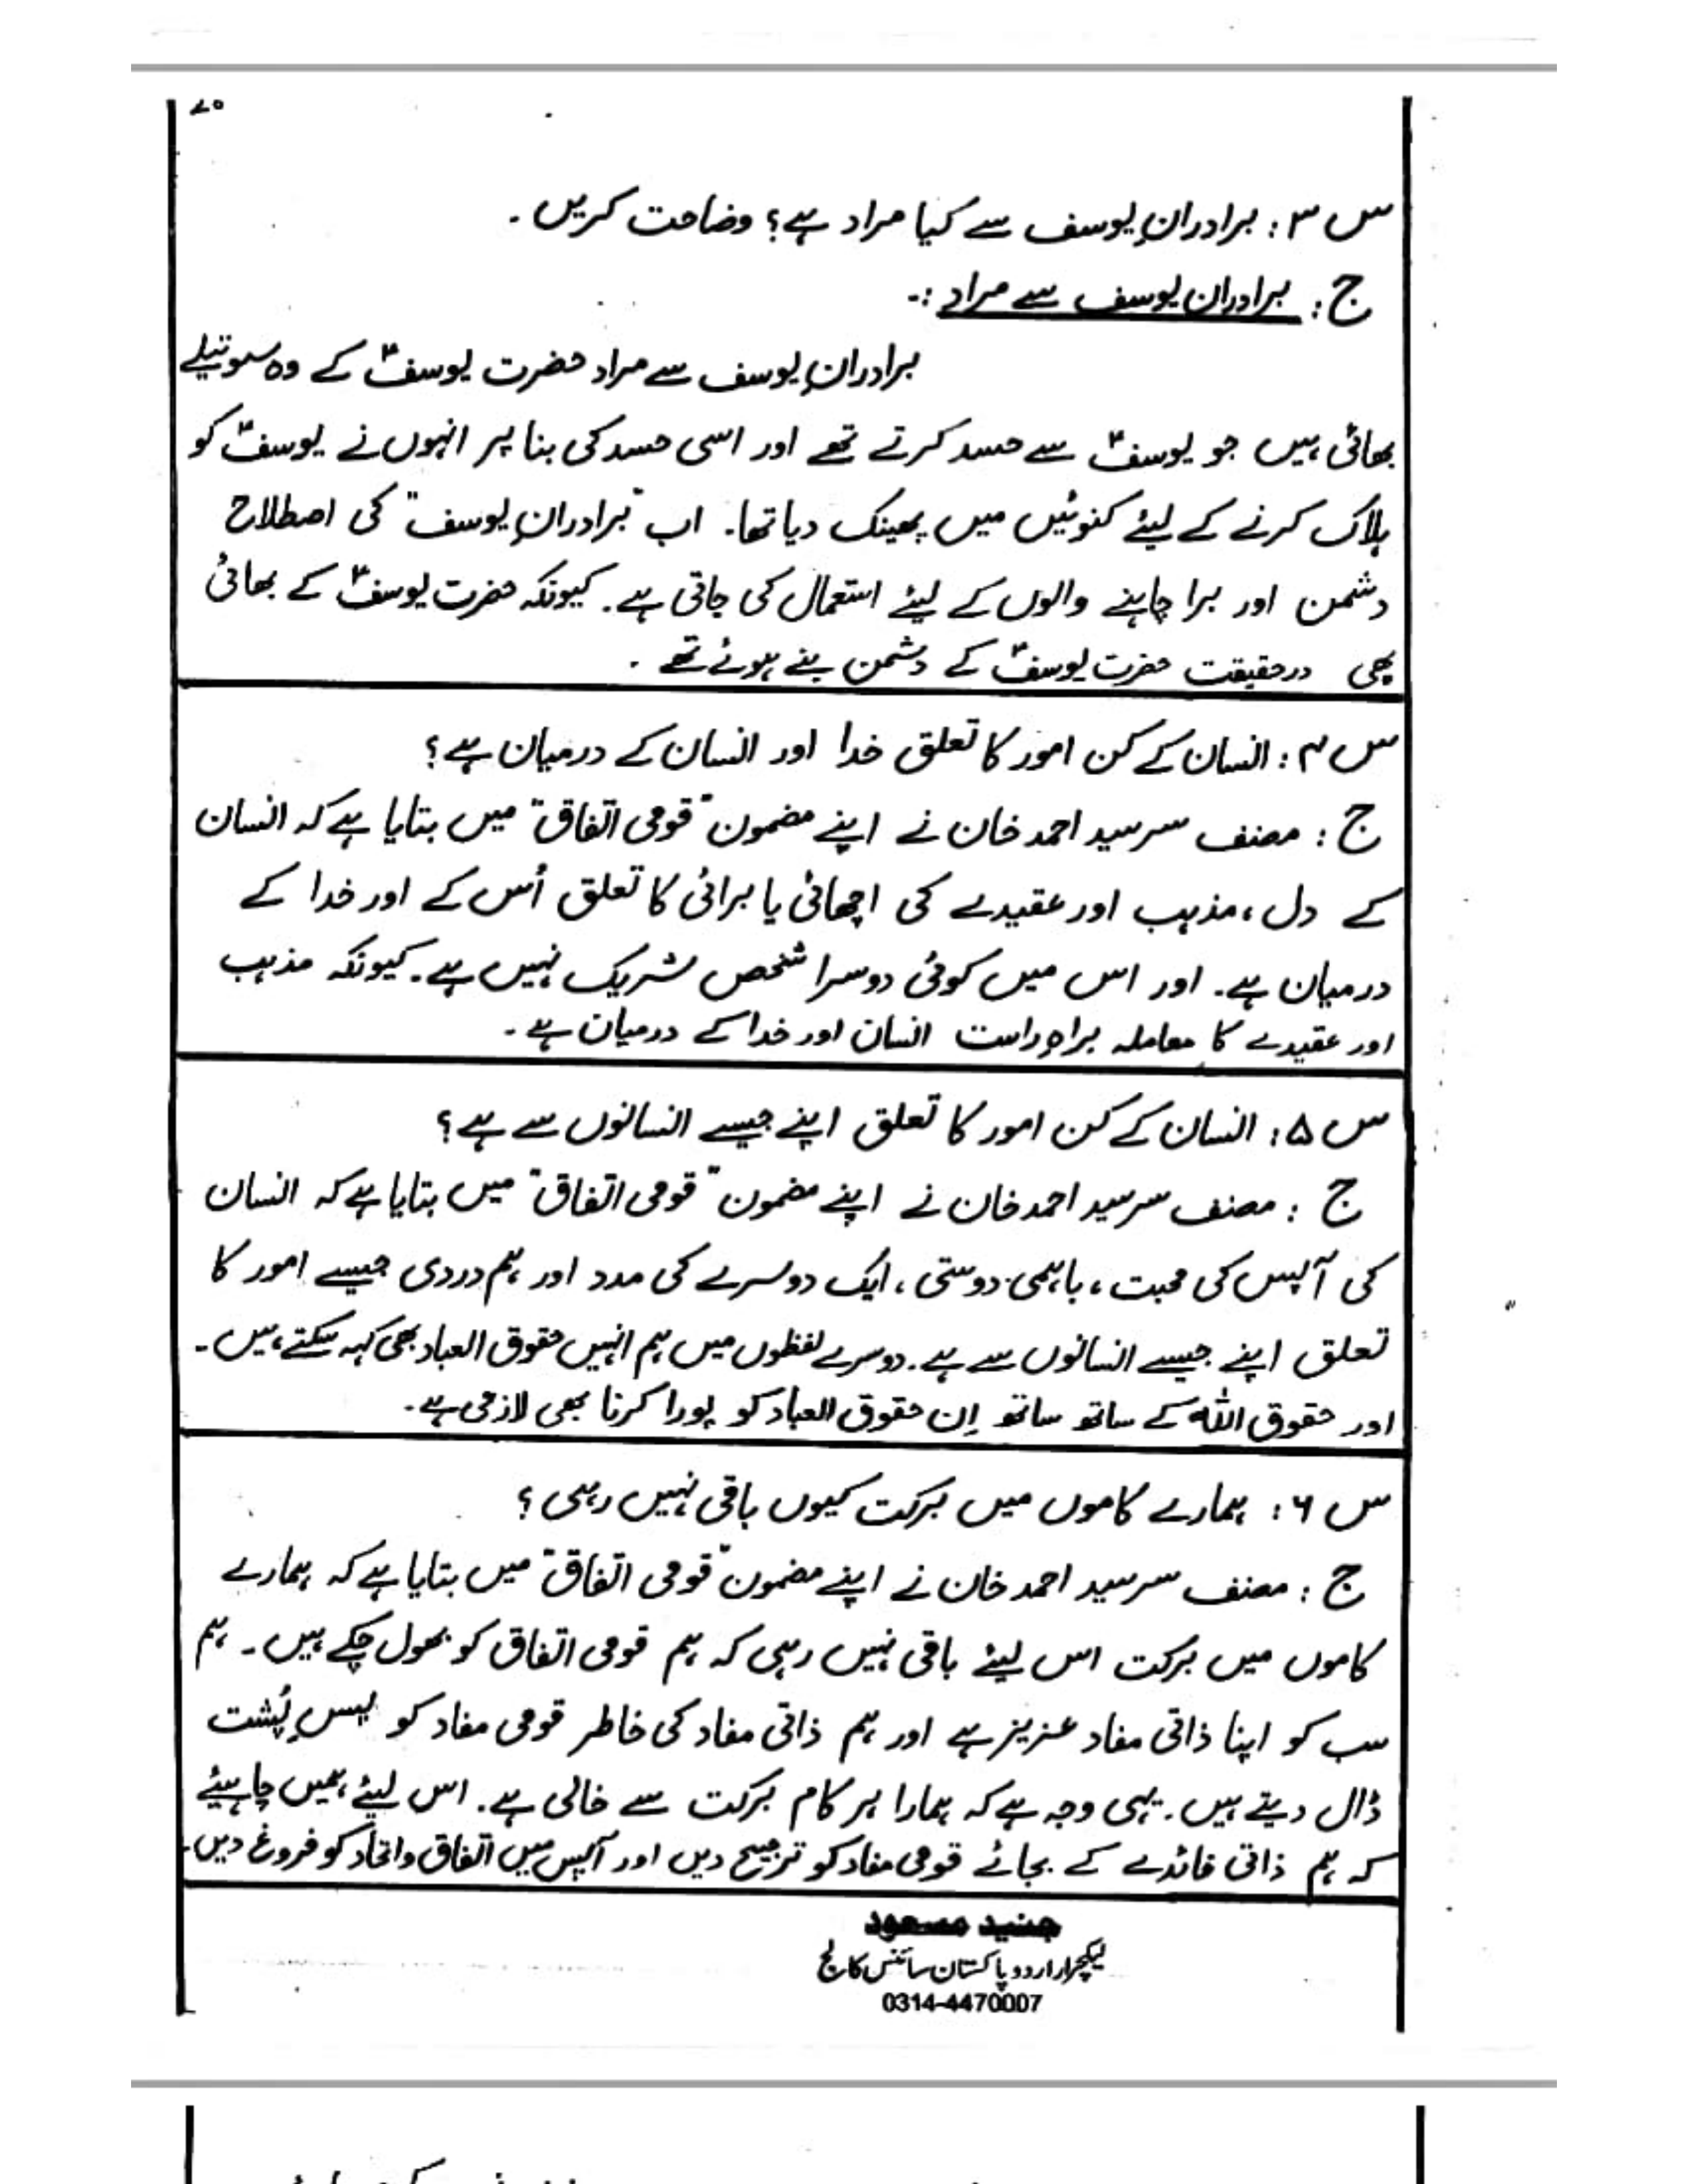 ۷۰
س ۳: برادرانِ یوسف سے کیا مراد ہے؟ وضاحت کریں۔
ج: برادرانِ یوسف سے مراد :-
برادرانِ یوسف سے مراد حضرت یوسفؑ کے وہ سوتیلے
بھائی ہیں جو یوسفؑ سے حسد کرتے تھے اور اسی حسد کی بنا پر انہوں نے یوسفؑ کو
ہلاک کرنے کے لیئے کنوئیں میں پھینک دیا تھا۔ اب "برادرانِ یوسف" کی اصطلاح
دشمن اور برا چاہنے والوں کے لیئے استعمال کی جاتی ہے۔ کیونکہ حضرت یوسفؑ کے بھائی
بھی درحقیقت حضرت یوسفؑ کے دشمن بنے ہوئے تھے۔
س ۴: انسان کے کن امور کا تعلق خدا اور انسان کے درمیان ہے؟
ج: مصنف سرسید احمد خان نے اپنے مضمون "قومی اتفاق" میں بتایا ہے کہ انسان
کے دل، مذہب اور عقیدے کی اچھائی یا برائی کا تعلق اُس کے اور خدا کے
درمیان ہے۔ اور اس میں کوئی دوسرا شخص شریک نہیں ہے۔ کیونکہ مذہب
اور عقیدے کا معاملہ براہِ راست انسان اور خدا کے درمیان ہے۔
س ۵: انسان کے کن امور کا تعلق اپنے جیسے انسانوں سے ہے؟
ج: مصنف سرسید احمد خان نے اپنے مضمون "قومی اتفاق" میں بتایا ہے کہ انسان
کی آپس کی محبت، باہمی دوستی، ایک دوسرے کی مدد اور ہم دردی جیسے امور کا
تعلق اپنے جیسے انسانوں سے ہے۔ دوسرے لفظوں میں ہم انہیں حقوق العباد بھی کہہ سکتے ہیں۔
اور حقوق اللہ کے ساتھ ساتھ اِن حقوق العباد کو پورا کرنا بھی لازمی ہے۔
س ۶: ہمارے کاموں میں برکت کیوں باقی نہیں رہی؟
ج: مصنف سرسید احمد خان نے اپنے مضمون "قومی اتفاق" میں بتایا ہے کہ ہمارے
کاموں میں برکت اس لیئے باقی نہیں رہی کہ ہم قومی اتفاق کو بھول چکے ہیں۔ ہم
سب کو اپنا ذاتی مفاد عزیز ہے اور ہم ذاتی مفاد کی خاطر قومی مفاد کو پسِ پُشت
ڈال دیتے ہیں۔ یہی وجہ ہے کہ ہمارا ہر کام برکت سے خالی ہے۔ اس لیئے ہمیں چاہیئے
کہ ہم ذاتی فائدے کے بجائے قومی مفاد کو ترجیح دیں اور آپس میں اتفاق و اتحاد کو فروغ دیں۔
جنید مسعود
لیکچرار اردو پاکستان سائنس کالج
0314-4470007